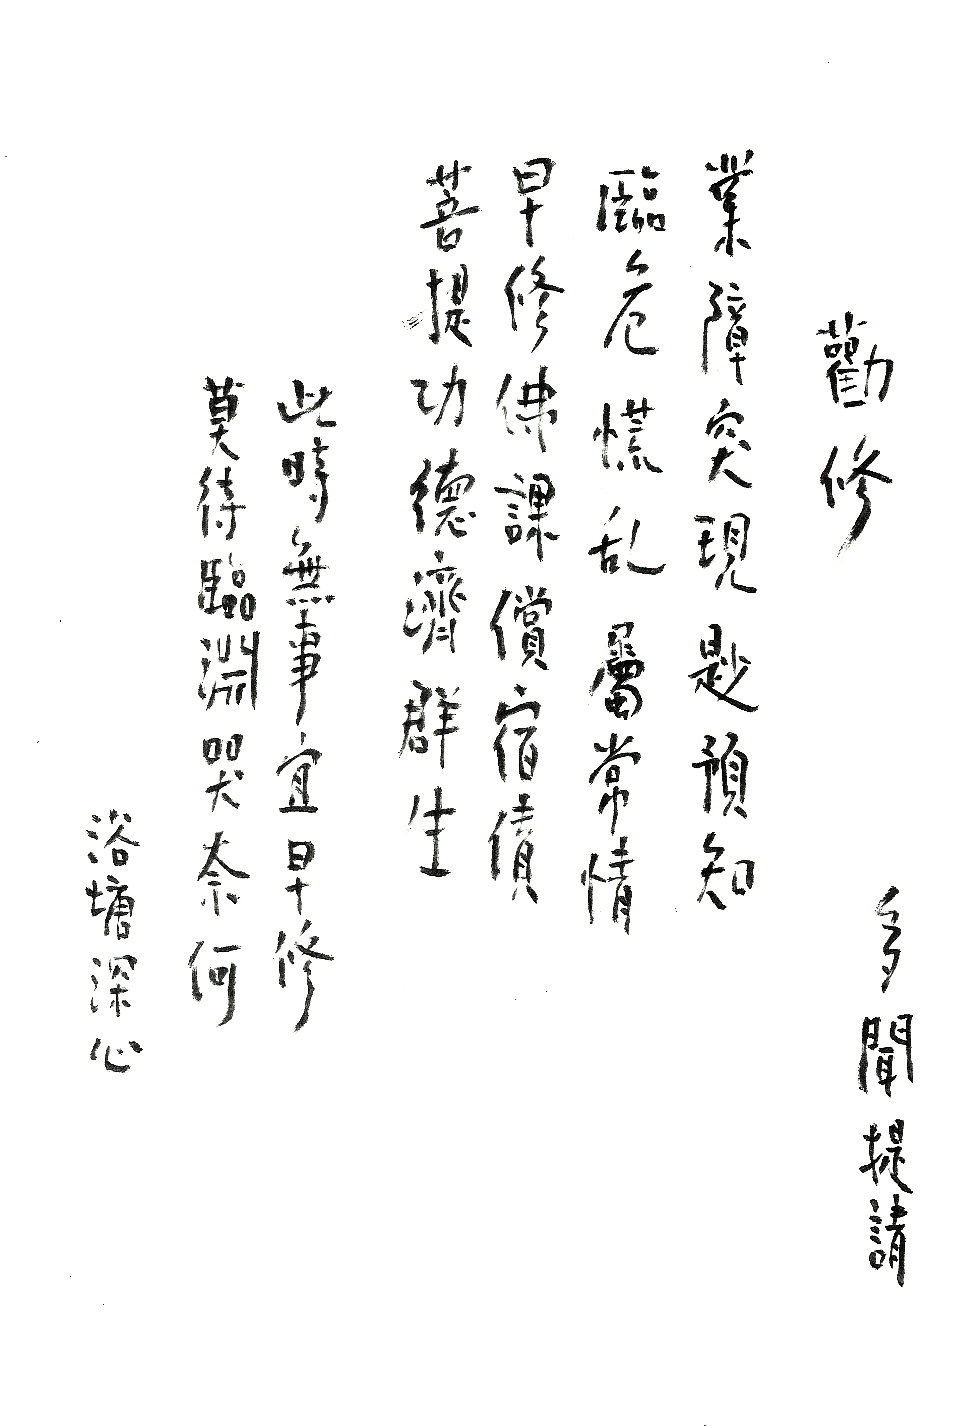 多聞提請
勸修
業障突現尟預知
臨危慌乱屬常情
早修佛課償宿債
菩提功德濟群生
此時無事宜早修
莫待臨淵哭奈何
浴塘深心